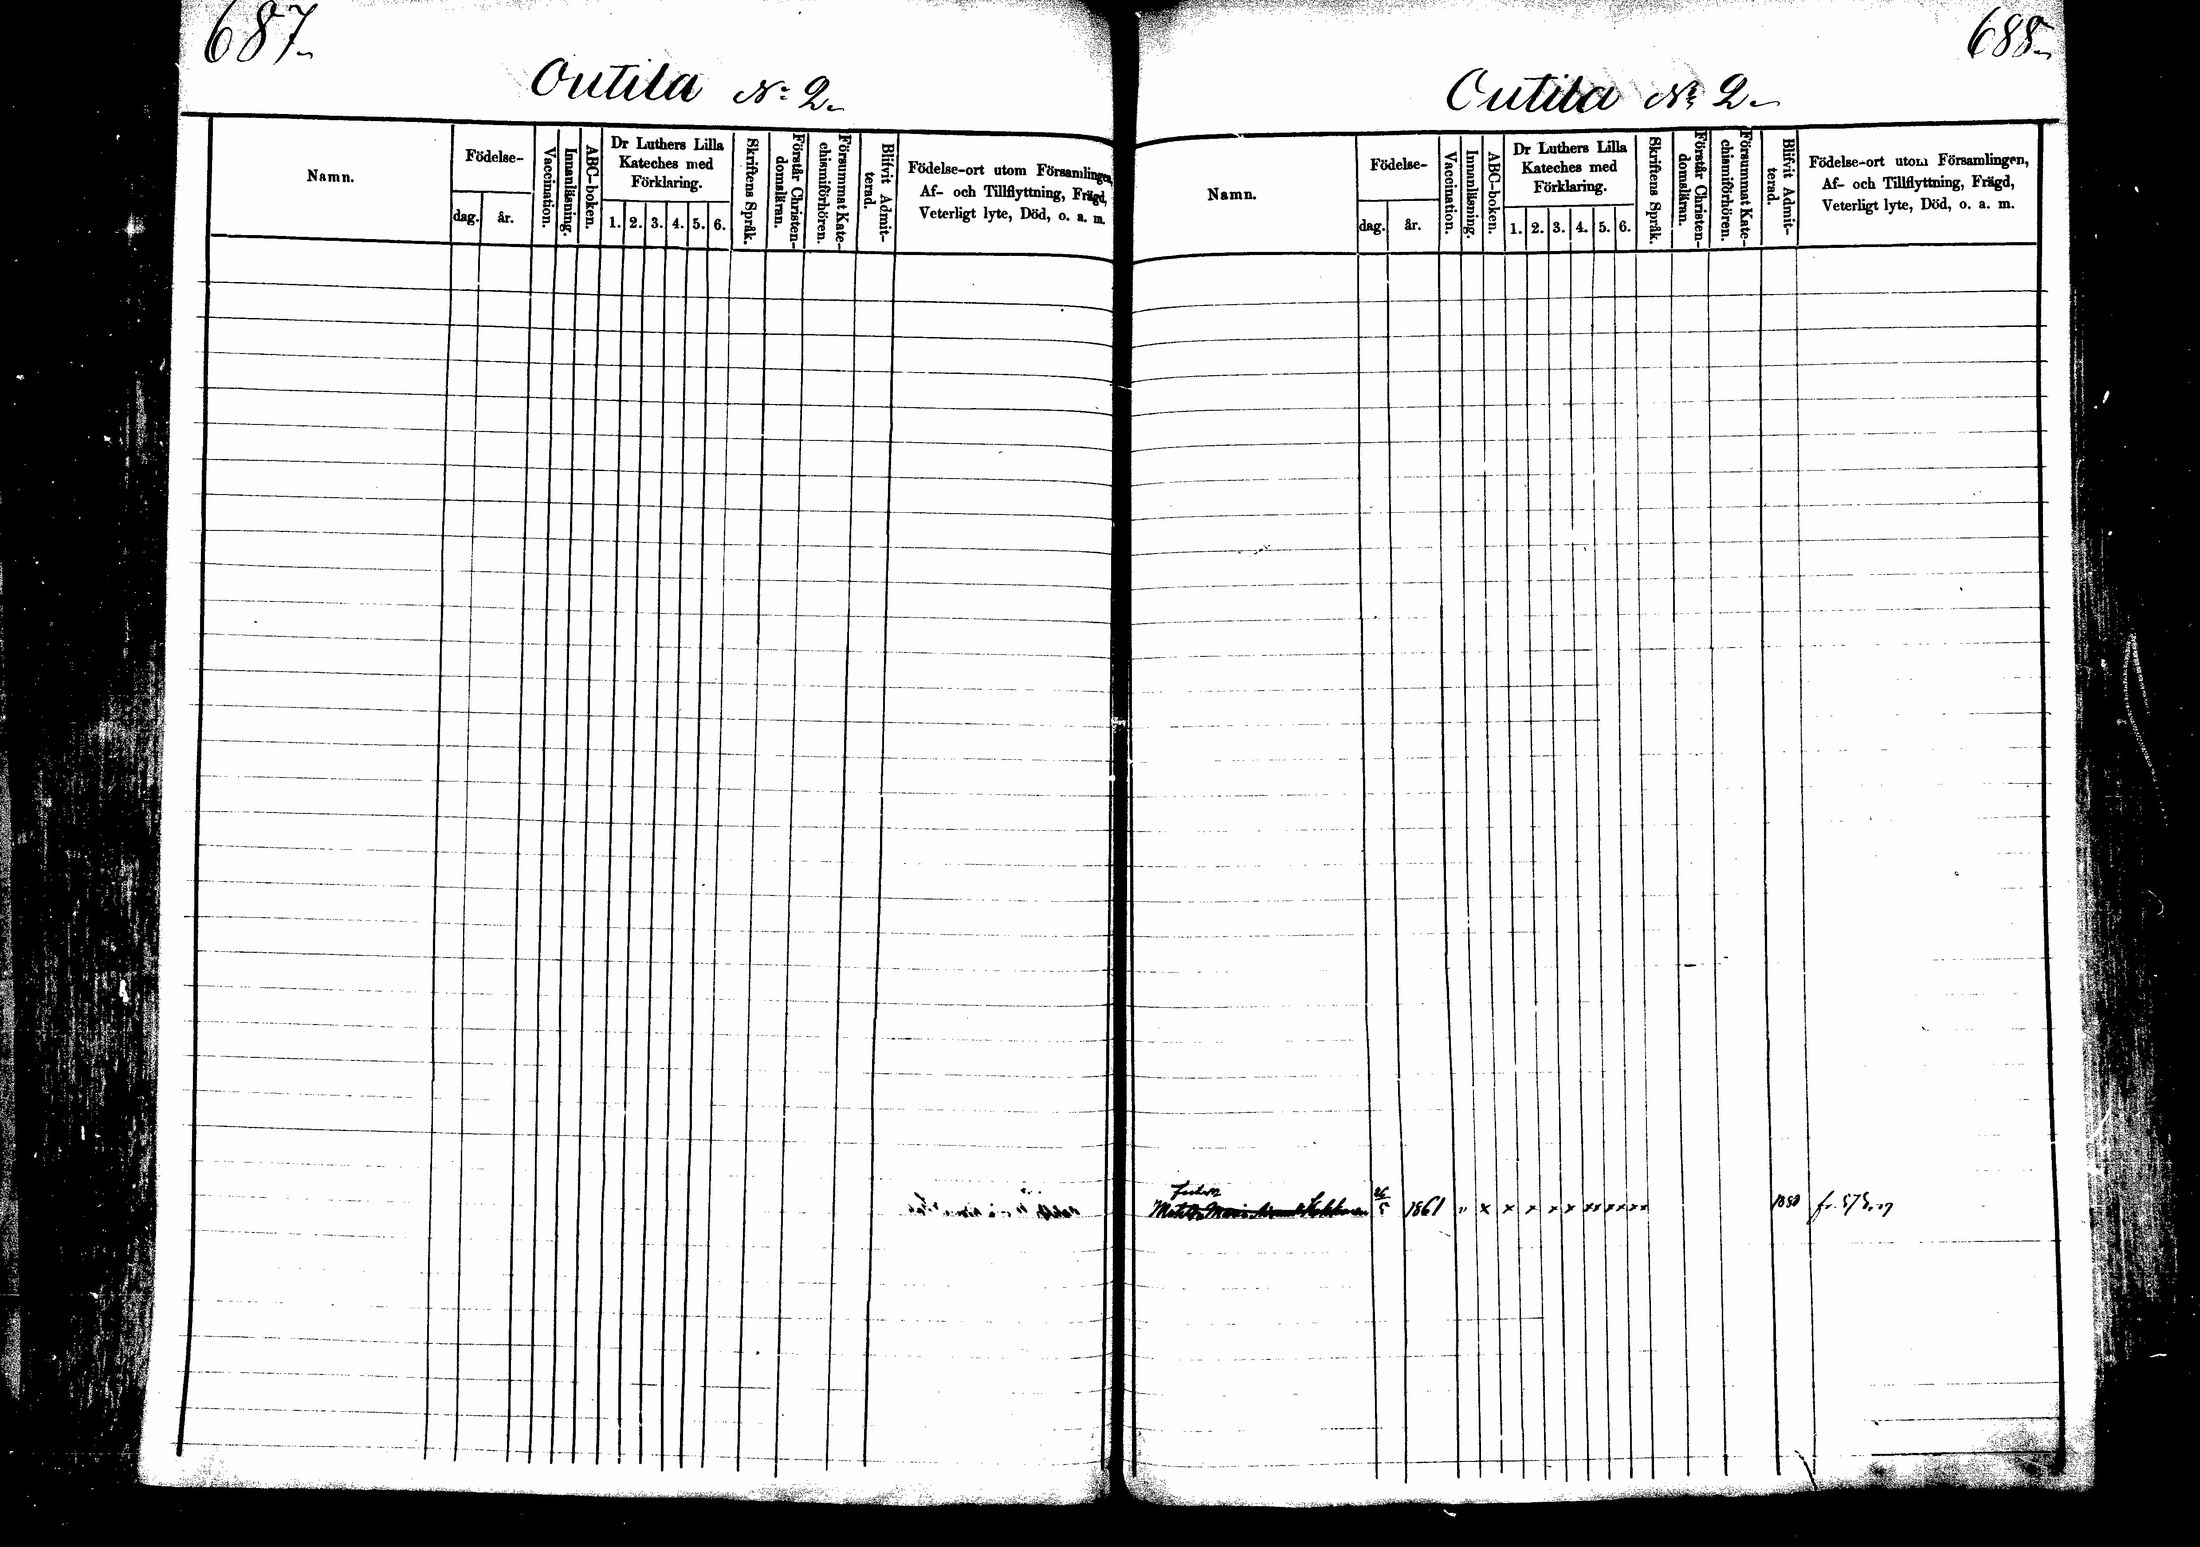 687
Outila No 2.
Namn.
Födelse-
dag.
år.
Vaccination.
Innanläsning.
ABC-boken.
Dr Luthers Lilla
Kateches med
Förklaring.
1. 2. 3. 4. 5. 6.
Skriftens Språk.
Förstår Christen-
domsläran.
Försummat Kate-
chismiförhören.
Blifvit Admit-
terad.
Födelse-ort utom Församlingen,
Af- och Tillflyttning, Frägd,
Veterligt lyte, Död, o. a. m.
688
Outila No 2
Namn.
Födelse-
dag.
år.
Vaccination.
Innanläsning.
ABC-boken.
Dr Luthers Lilla
Kateches med
Förklaring.
1. 2. 3. 4. 5. 6.
Skriftens Språk.
Förstår Christen-
domsläran.
Försummat Kate-
chismiförhören.
Blifvit Admit-
terad.
Födelse-ort utom Församlingen,
Af- och Tillflyttning, Frägd,
Veterligt lyte, Död, o. a. m.
26/5 1861 " x x x x x x x x x x 1880 fr.